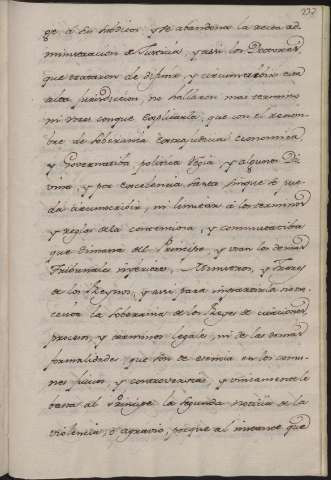 237
ge á sus subditos y se abandona la recta ad
ministracion de Justicia, y assi los Doctores,
que trataron de definir, y circunscribir esta
alta jurisdiccion, no hallaron mas termino
ni voces conque explicarla, que con el renom
bre de soberanía economica,
y Governativa politica regia, y algunos Di
vina, y por excelencia Santa sin que se pue
da circunscribir, ni limitar á los terminos
y reglas de la contenciosa, y commutativa
que dimana del Principe, y usan los demas
Tribunales inferiores, Ministros, y Juezes
de los Reynos, y assi para interarla no ne
cesita la soberania de los Reyes de citaciones
proceso, y terminos legales, ni de las demas
formalidades que son de esencia en los comu
nes juicios, y controversias, y unicamente le
basta al Principe la segunda noticia de la
violencia, ó agravio, porque al instante que